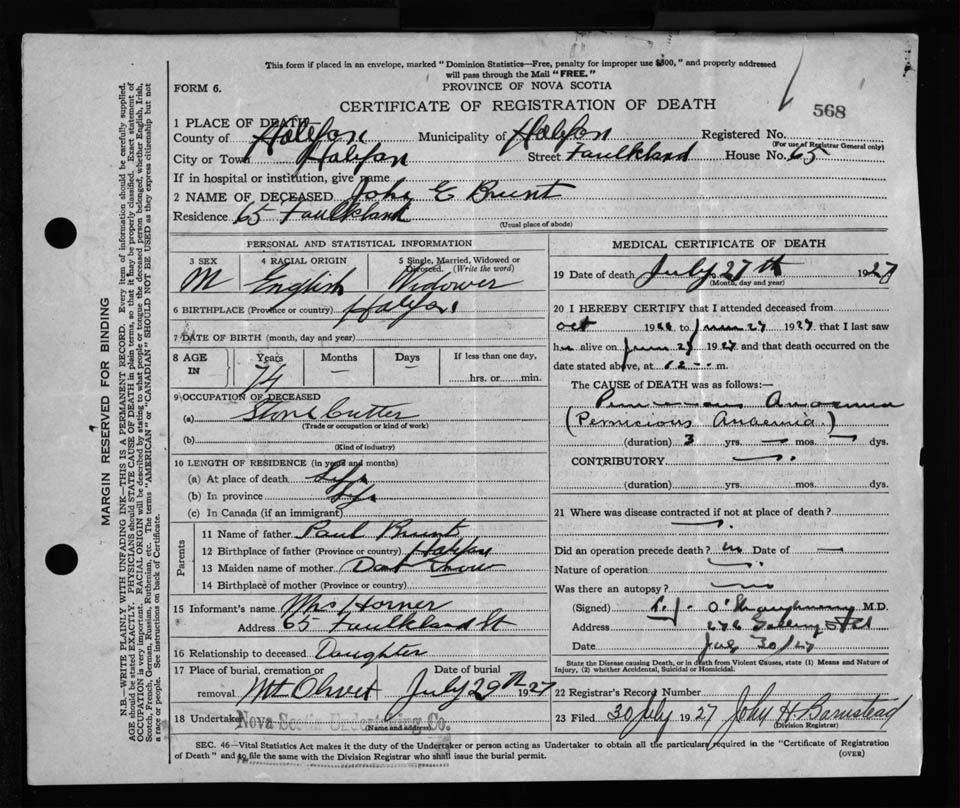 This form if placed in an envelope, marked "Dominion Statistics—Free, penalty for improper use $300," and properly addressed
will pass through the Mail "FREE."
FORM 6.
PROVINCE OF NOVA SCOTIA
CERTIFICATE OF REGISTRATION OF DEATH
568
1 PLACE OF DEATH
County of Halifax Municipality of Halifax Registered No.
(For use of Registrar General only)
City or Town Halifax Street Faulkland House No. 65
If in hospital or institution, give name
2 NAME OF DECEASED John E Brunt
Residence 65 Faulkland
(Usual place of abode)
PERSONAL AND STATISTICAL INFORMATION
3 SEX M
4 RACIAL ORIGIN English
5 Single, Married, Widowed or Divorced. (Write the word) Widower
6 BIRTHPLACE (Province or country) Halifax
7 DATE OF BIRTH (month, day and year)
8 AGE IN Years 74 Months — Days — If less than one day, ........hrs. or........min.
9 OCCUPATION OF DECEASED
(a) Stone Cutter
(Trade or occupation or kind of work)
(b)
(Kind of industry)
10 LENGTH OF RESIDENCE (in years and months)
(a) At place of death Life
(b) In province Life
(c) In Canada (if an immigrant)
Parents
11 Name of father Paul Brunt
12 Birthplace of father (Province or country) Halifax
13 Maiden name of mother Dont Know
14 Birthplace of mother (Province or country)
15 Informant's name Mrs Horner
Address 65 Faulkland St
16 Relationship to deceased Daughter
17 Place of burial, cremation or removal Mt Olivet Date of burial July 29th 1927
18 Undertaker Nova Scotia Undertaking Co.
(Name and address)
MEDICAL CERTIFICATE OF DEATH
19 Date of death July 27th 1927
(Month, day and year)
20 I HEREBY CERTIFY that I attended deceased from
Oct 1926 to 27 1927 that I last saw
him alive on 1927 and that death occurred on the
date stated above, at 12 -- m.
The CAUSE OF DEATH was as follows:—
Pernicious Anaemia
(Pernicious Anaemia.)
(duration) 3 yrs. — mos. — dys.
CONTRIBUTORY —
(duration) yrs. mos. dys.
21 Where was disease contracted if not at place of death?
—
Did an operation precede death? no Date of —
Nature of operation —
Was there an autopsy? no
(Signed) O'Shaughnessy M.D.
Address
Date July 30/27
State the Disease causing Death, or in death from Violent Causes, state (1) Means and Nature of Injury, (2) whether Accidental, Suicidal or Homicidal.
22 Registrar's Record Number
23 Filed 30 July 1927 John H. Barnstead
Division Registrar
SEC. 46—Vital Statistics Act makes it the duty of the Undertaker or person acting as Undertaker to obtain all the particulars required in the "Certificate of Registration
of Death" and to file the same with the Division Registrar who shall issue the burial permit.
(OVER)
MARGIN RESERVED FOR BINDING
N.B.—WRITE PLAINLY WITH UNFADING INK—THIS IS A PERMANENT RECORD. Every item of information should be carefully supplied.
AGE should be stated EXACTLY. PHYSICIANS should STATE CAUSE OF DEATH in plain terms, so that it may be properly classified. Exact statement of
OCCUPATION is very important. RACIAL ORIGIN will be described by stating to what people or tongue the deceased person belonged, whether English, Irish,
Scotch, French, German, Russian, Ruthenian, etc. The terms "AMERICAN" or "CANADIAN" SHOULD NOT BE USED as they express citizenship but not
a race or people. See instructions on back of Certificate.